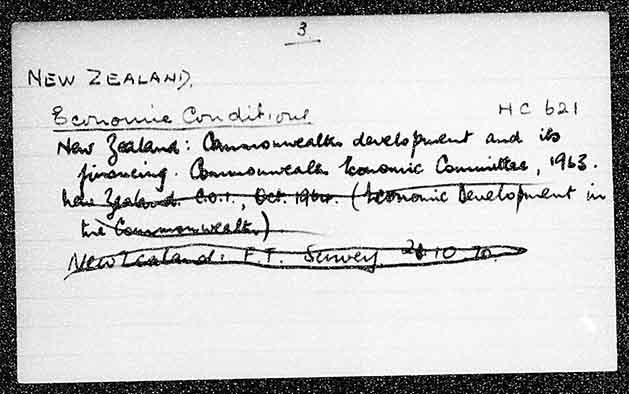 3
NEW ZEALAND.
Economic Conditions HC 621
New Zealand: Commonwealth development and its
financing. Commonwealth Economic Committee, 1963.
New Zealand. C.O.I., Oct. 1964. (Economic Development in
the Commonwealth)
New Zealand: F.T. Survey 10.70.